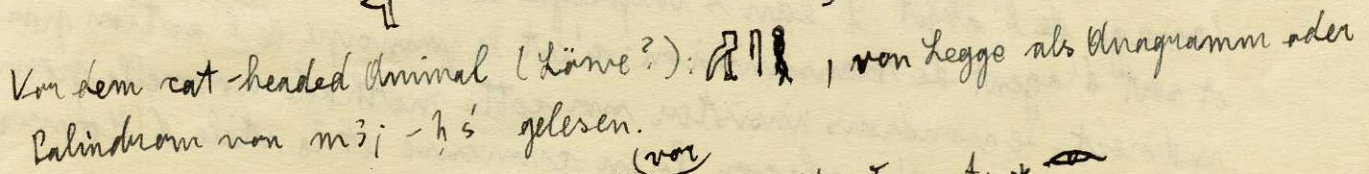 Vor dem cat-headed Animal (Löwe?): , von Legge als Anagramm oder
Palindrom von m3j-ḥś gelesen.
(vor)